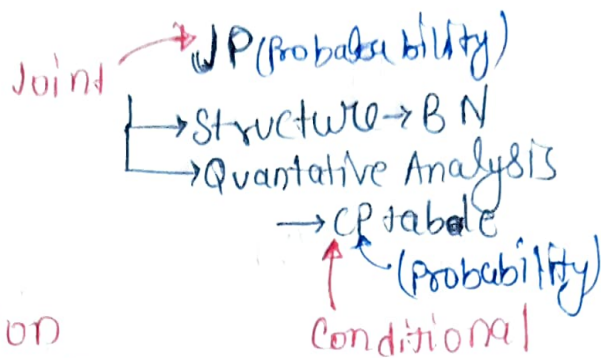 Joint
JP (Probabability)
→ Structure → BN
→ Quantative Analysis
→ CP table
(Probability)
on
Conditional